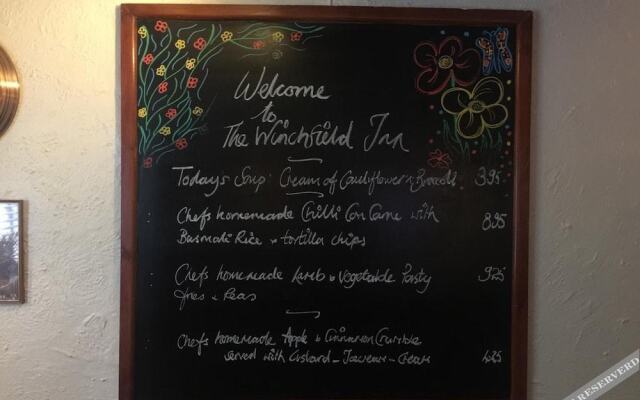 Welcome
to
The Winchfield Inn
Todays Soup: Cream of Cauliflower & Broccoli 3.95
Chefs homemade Chilli Con Carne with 8.95
Basmati Rice & tortilla chips
Chefs homemade Lamb & Vegetable Pasty 9.25
fries & Peas
Chefs homemade Apple & Cinnamon Crumble
served with Custard - Icecream - Cream 4.25
RESERVED